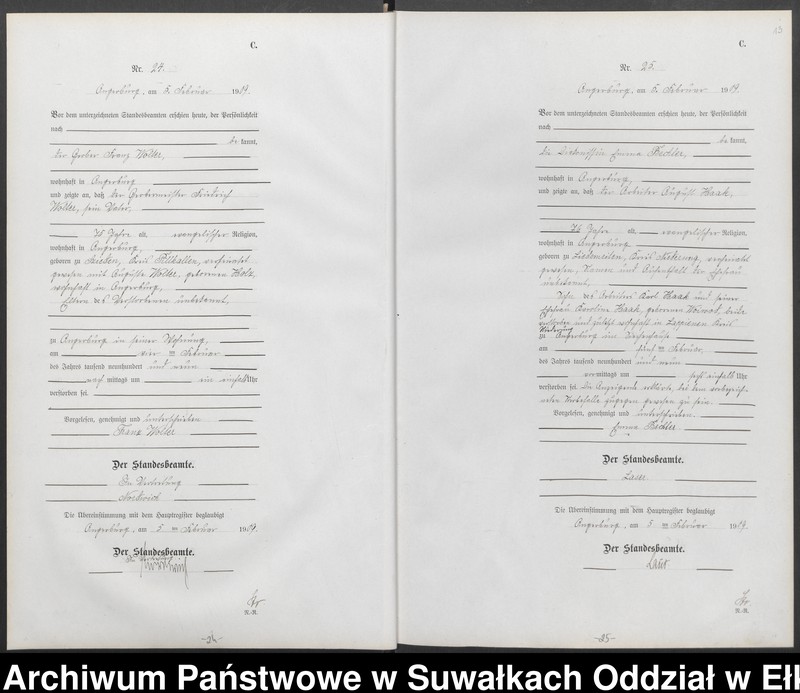 C.
Nr. 24.
Angerburg, am 5. Februar 1909.
Vor dem unterzeichneten Standesbeamten erschien heute, der Persönlichkeit
nach
be kannt,
der Gerber Franz Woller,
wohnhaft in Angerburg
und zeigte an, daß der Gerbermeister Friedrich
Woller, sein Vater,
75 Jahre alt, evangelischer Religion,
wohnhaft in Angerburg,
geboren zu Kreis Pillkallen, verheiratet
gewesen mit Auguste Woller, geborenen Holz,
wohnhaft in Angerburg,
Eltern des Verstorbenen unbekannt,
zu Angerburg in seiner Wohnung,
am vier ten Februar
des Jahres tausend neunhundert und neun
nach mittags um ein einhalb Uhr
verstorben sei.
Vorgelesen, genehmigt und unterschrieben
Franz Woller
Der Standesbeamte.
In Vertretung
Die Übereinstimmung mit dem Hauptregister beglaubigt
Angerburg, am 5 ten Februar 1909.
Der Standesbeamte.
In Vertretung
N.-R.
-24-
13
C.
Nr. 25.
Angerburg, am 5. Februar 1909.
Vor dem unterzeichneten Standesbeamten erschien heute, der Persönlichkeit
nach
be kannt,
die Diakonissin Emma
wohnhaft in Angerburg,
und zeigte an, daß der Arbeiter August Haak,
Jahre alt, evangelischer Religion,
wohnhaft in Angerburg
geboren zu Kreis verheiratet
gewesen, Namen und Aufenthalt der Ehefrau
unbekannt,
Sohn des Arbeiters Karl Haak und seiner
Ehefrau Karoline Haak, geborenen beide
verstorben und zuletzt wohnhaft in Kreis
Niederung
zu Angerburg im Siechenhause
am fünf ten Februar,
des Jahres tausend neunhundert und neun
vor mittags um sechs einhalb Uhr
verstorben sei. Die Anzeigende erklärte, bei dem vorbezeich-
neten Sterbefalle zugegen gewesen zu sein.
Vorgelesen, genehmigt und unterschrieben.
Emma
Der Standesbeamte.
Laser
Die Übereinstimmung mit dem Hauptregister beglaubigt
Angerburg, am 5 ten Februar 1909.
Der Standesbeamte.
N.-R.
-25-
Archiwum Państwowe w Suwałkach Oddział w Ełk